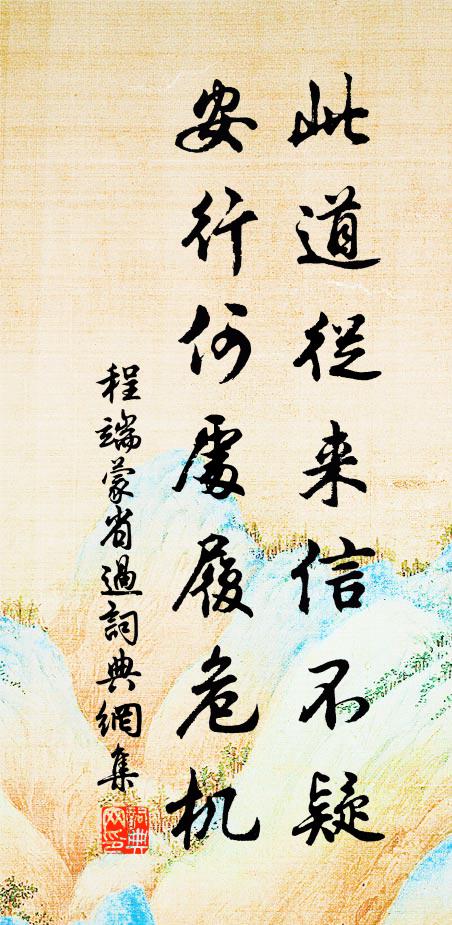 此道從来信不疑
安行何處履危机
程端蒙省過詞典網集
詞典网印